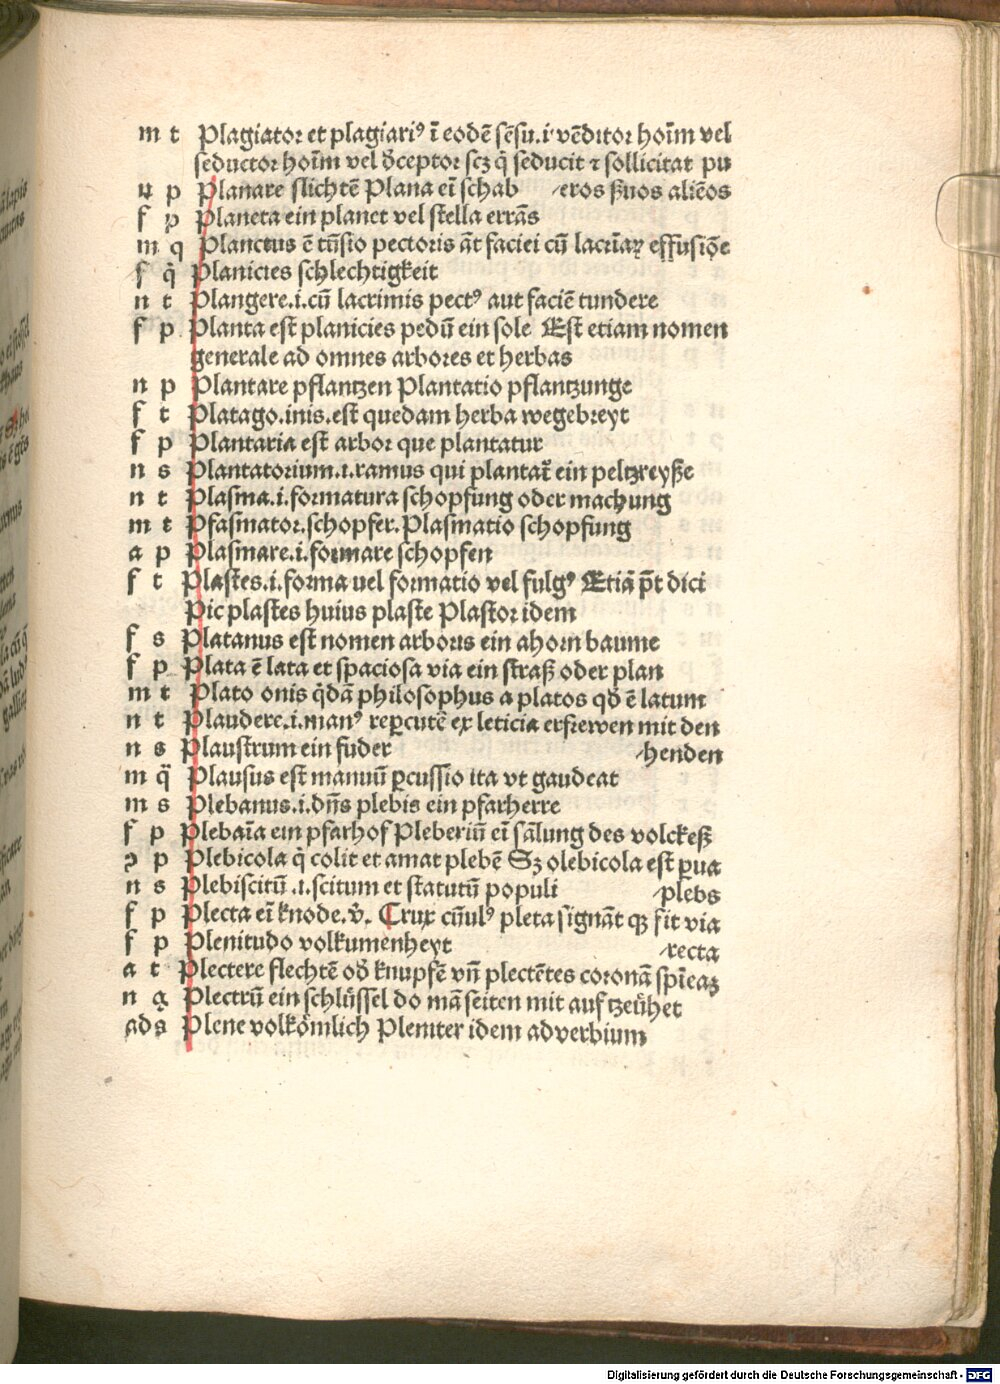 m t Plagiator et plagiariꝰ ī eodē sēsu.i.vēditor hoīm vel
seductor hoīm vel dceptor scz q̄ seducit ⁊ sollicitat pu
v p Planare slichtē Plana eī schab eros suos aliēos
f p Planeta ein planet vel stella errās
m q Planctus ē tūsio pectoris āt faciei cū lacrīaꝝ effusiōe
f q̄ Planicies schlechtigkeit
n t Plangere.i.cū lacrimis pectꝰ aut faciē tundere
f p Planta est planicies pedū ein sole Est etiam nomen
generale ad omnes arbores et herbas
n p Plantare pflantzen Plantatio pflantzunge
f t Platago.inis.est quedam herba wegebreyt
f p Plantaria est arbor que plantatur
n s Plantatorium.i.ramus qui plantat̄ ein peltzreyße
n t Plasma.i.formatura schopfung oder machung
m t Pfasmator.schopfer.Plasmatio schopfung
a p Plasmare.i.formare schopfen
f t Plastes.i.forma uel formatio vel fulgꝰ Etiā pōt dici
Pic plastes huius plaste Plastor idem
f s Platanus est nomen arboris ein ahorn baume
f p Plata ē lata et spaciosa via ein straß oder plan
m t Plato onis q̄dā philosophus a platos qd ē latum
n t Plaudere.i.manꝰ repcutē ex leticia erfrewen mit den
n s Plaustrum ein fuder henden
m q̄ Plausus est manuū pcussio ita vt gaudeat
m s Plebanus.i.dn̄s plebis ein pfarherre
f p Plebaīa ein pfarhof Pleberiū eī sālung des volckeß
ꝯ p Plebicola q̄ colit et amat plebē Sz olebicola est pua
n s Plebiscitū .i.scitum et statutū populi plebs
f p Plecta eī knode.v̄. Crux cūulꝰ pleta signāt qꝫ fit via
f p Plenitudo volkumenheyt recta
a t Plectere flechtē od knupfē vn̄ plectētes coronā spīeaꝝ
n q Plectrū ein schlüssel do mā seiten mit auf tzeühet
ads Plene volkömlich Pleniter idem adverbium
Digitalisierung gefördert durch die Deutsche Forschungsgemeinschaft - DFG